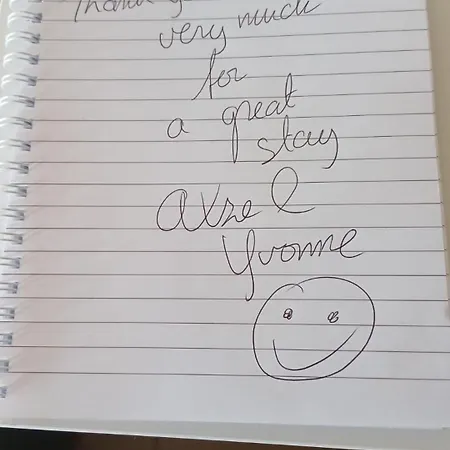 Thank you
very much
for
a great
stay
Axel
Yvonne